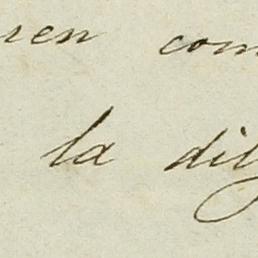 ren com
la dilg